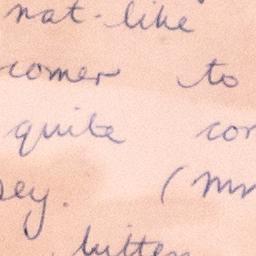 nat-like
comer to
quite cor
sey. (Mr
bitten